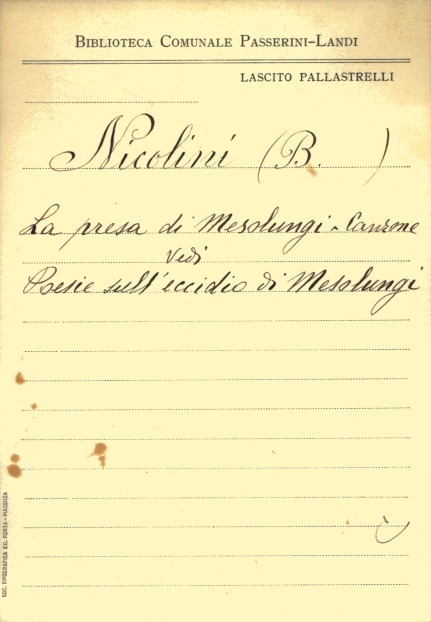 BIBLIOTECA COMUNALE PASSERINI-LANDI
LASCITO PALLASTRELLI
Nicolini (B. )
La presa di Mesolungi - Canzone
Vedi
Poesie sull'eccidio di Mesolungi
SOC. TIPOGRAFICA ED. PORTA - PIACENZA